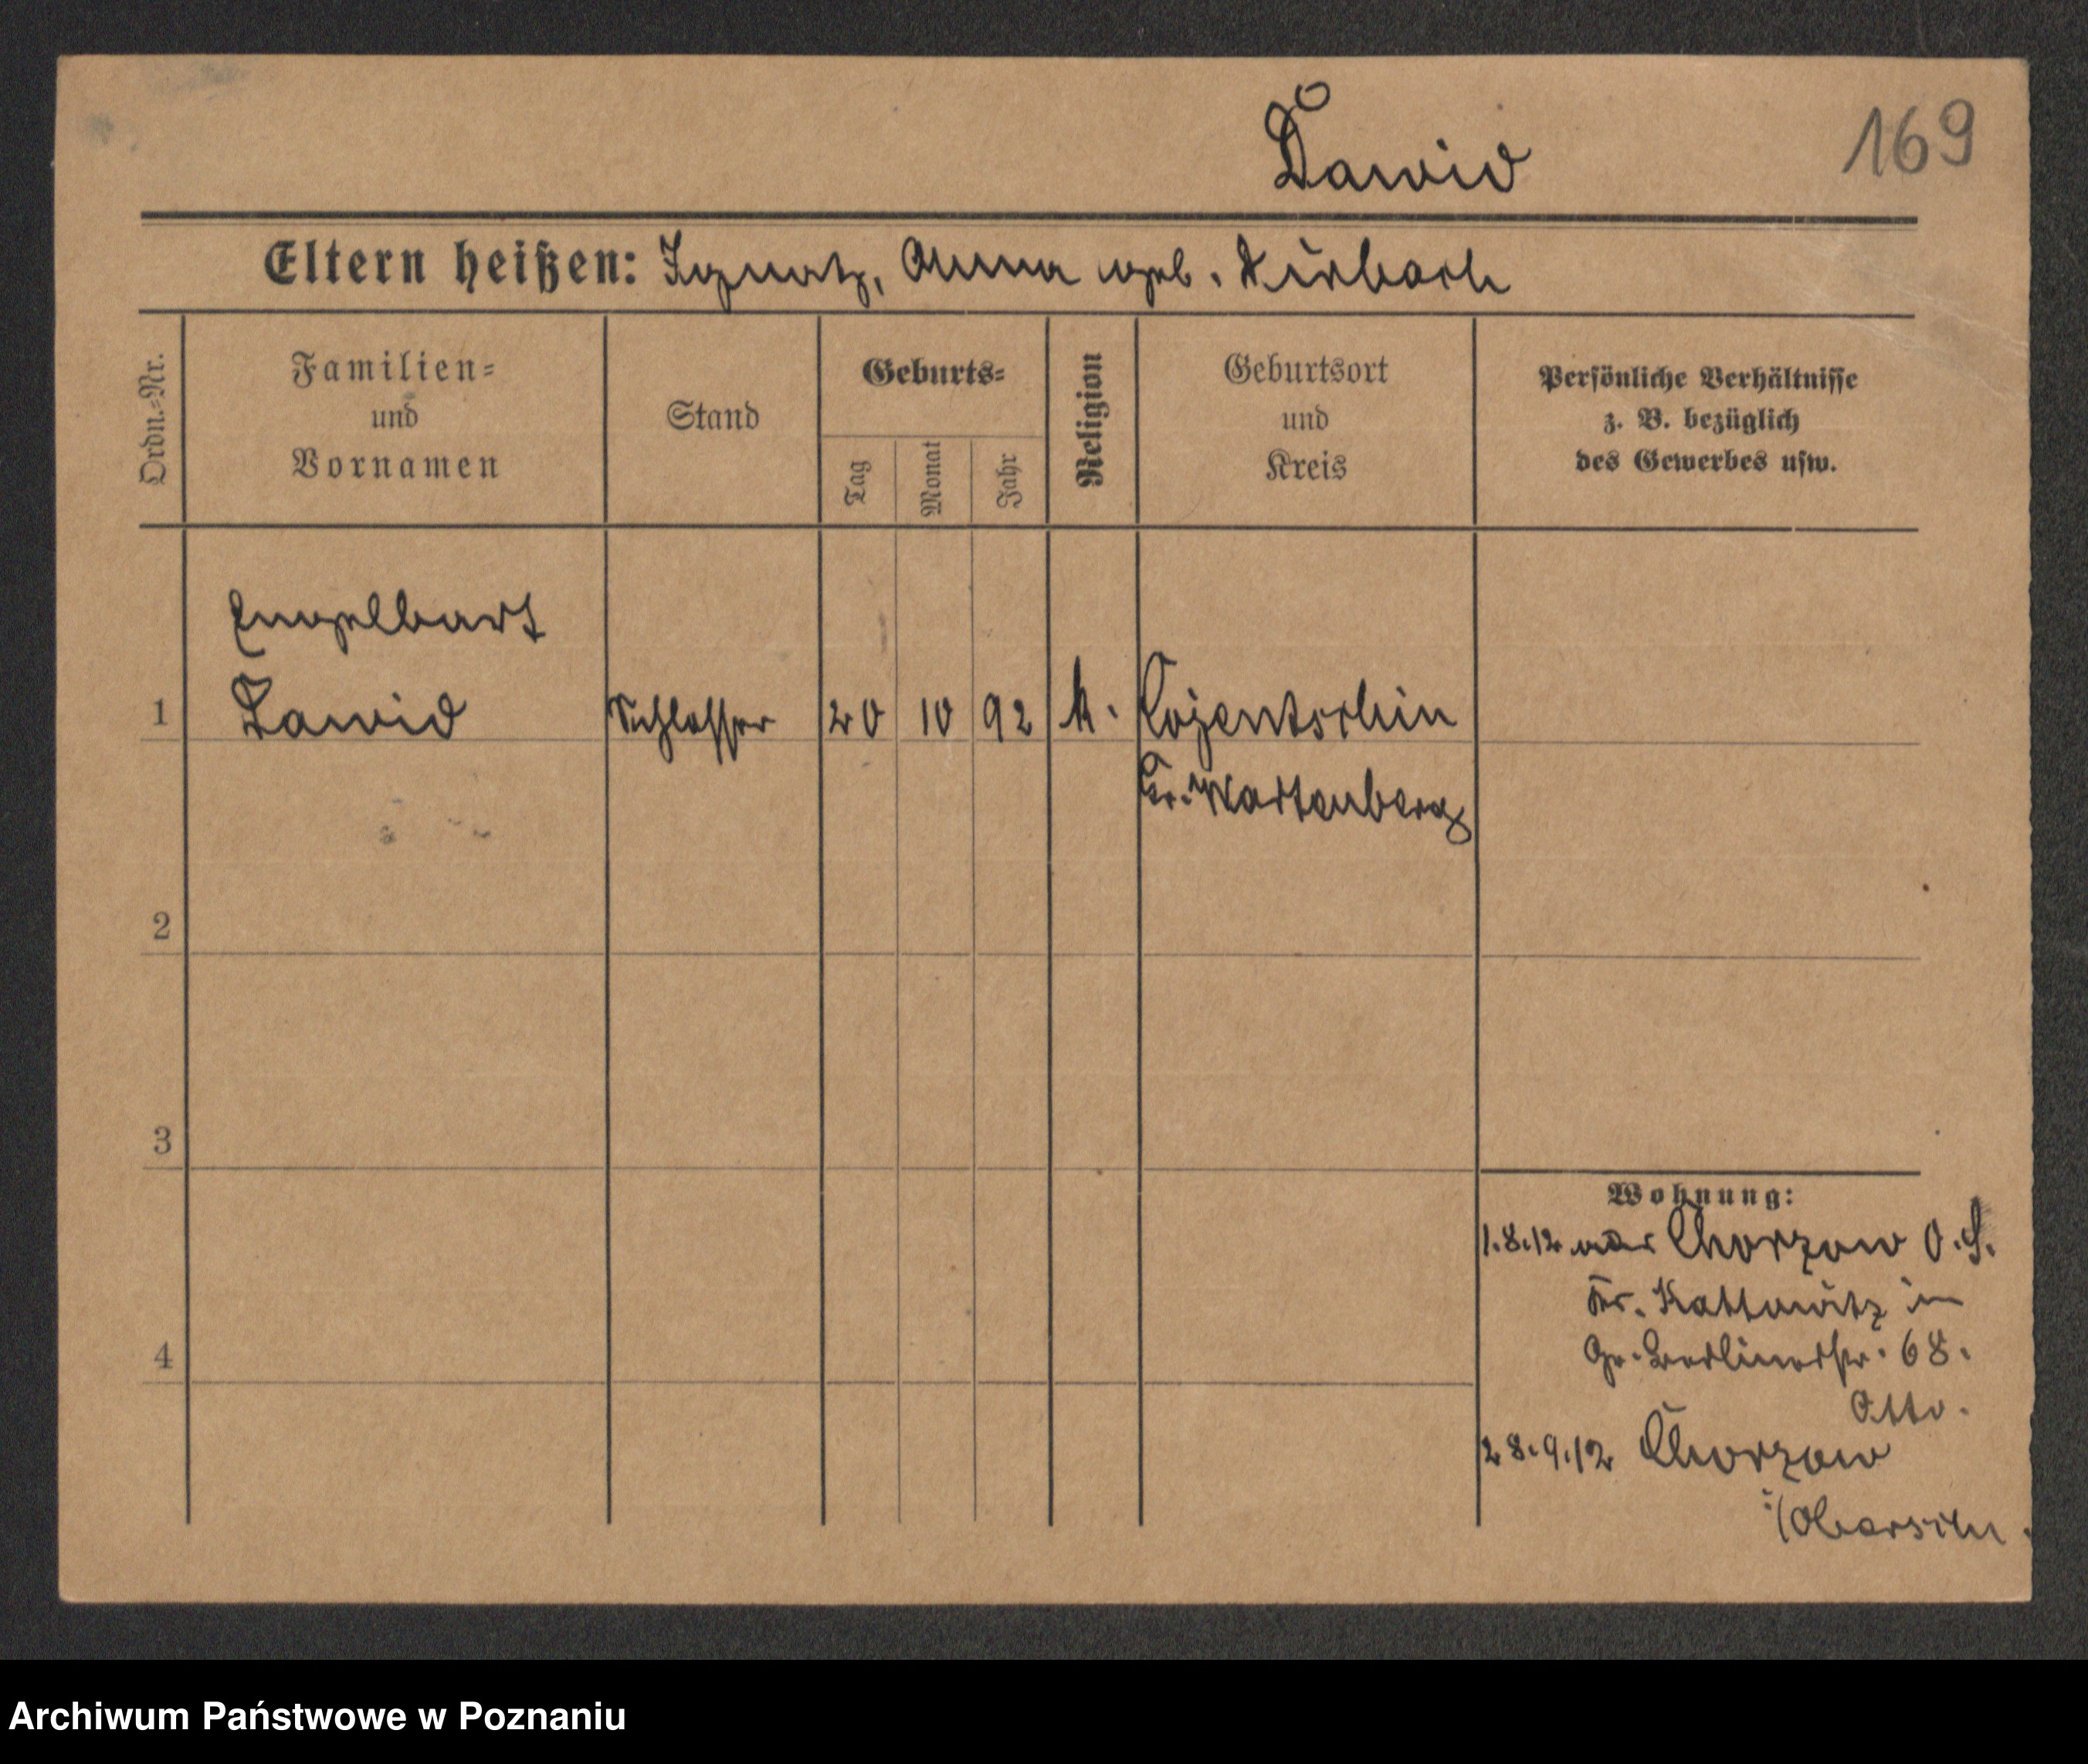 Dawid
169
Eltern heißen: Ignatz, Anna geb. Kirbach
Ordn.=Nr.
Familien=
und
Vornamen
Stand
Geburts=
Tag
Monat
Jahr
Religion
Geburtsort
und
Kreis
Persönliche Verhältnisse
z. B. bezüglich
des Gewerbes usw.
Engelbert
1 Dawid Schlosser 20 10 92 k. Cojentschin
Gr. Wartenberg
2
3
4
Wohnung:
1.8.12 Chorzow O.S.
Kr. Kattowitz in
68.
Otto.
28.9.12 Chorzow
i/Obersch.
Archiwum Państwowe w Poznaniu